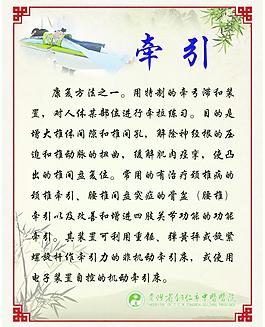 牵引
康复方法之一。用特制的牵引带和装
置，对人体某部位进行牵拉练习。目的是
增大椎体间隙和椎间孔，解除神经根的压
迫和椎动脉的扭曲，缓解肌肉痉挛，使凸
出的椎间盘复位。常用的有治疗颈椎病的
颈椎牵引、腰椎间盘突症的骨盆（腰椎）
牵引以及改善和增进四肢关节功能的功能
牵引。其装置可利用重锤、弹簧秤或放紧
螺旋杆作牵引力的非机动牵引床，或使用
电子装置自控的机动牵引床。
贵州省铜仁市中医医院